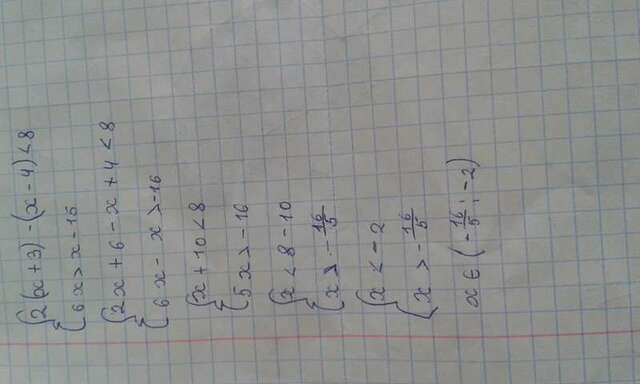 {2(x+3)-(x-4)<8
{6x>x-15
{2x+6-x+4<8
{6x-x>-16
{x+10<8
{5x>-16
{x<8-10
{x>-16/5
{x<-2
{x>-16/5
x∈(-16/5;-2)